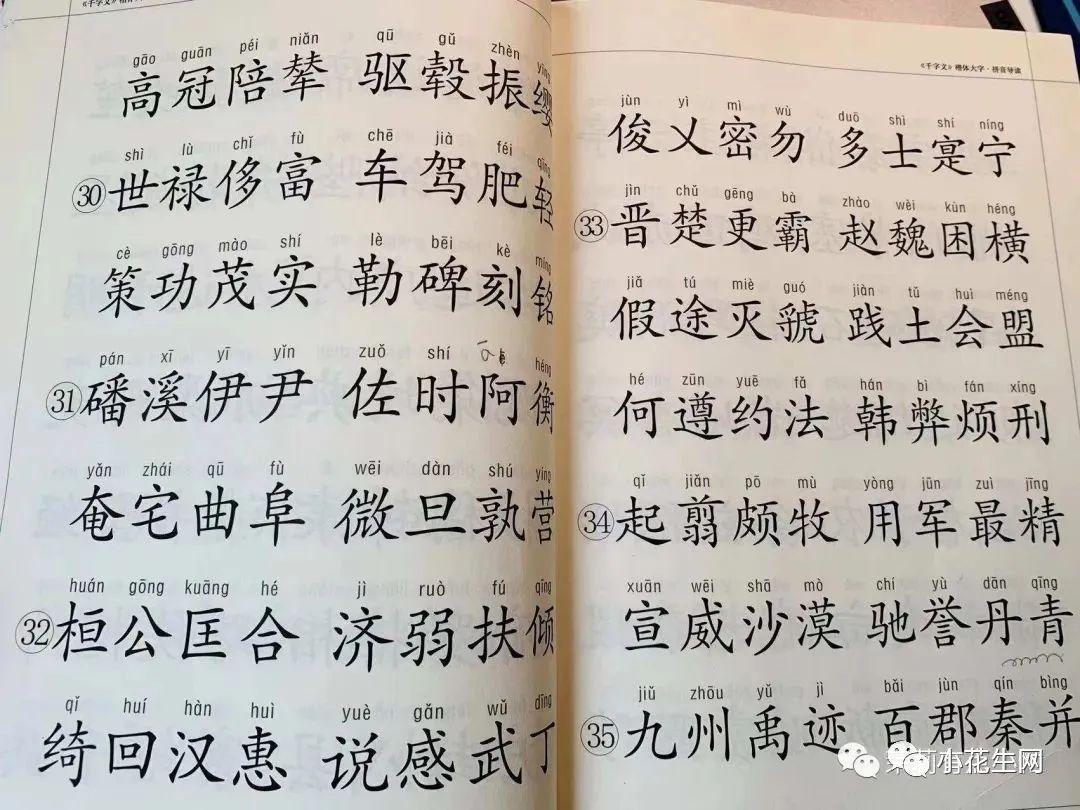 《千字文》楷体大
gāo guān péi niǎn qū gǔ zhèn yīng
高冠陪辇 驱毂振缨
shì lù chǐ fù chē jià féi qīng
㉚世禄侈富 车驾肥轻
cè gōng mào shí lè bēi kè míng
策功茂实 勒碑刻铭
pán xī yī yǐn zuǒ shí ē héng
㉛磻溪伊尹 佐时阿衡
yǎn zhái qū fù wēi dàn shú yíng
奄宅曲阜 微旦孰营
huán gōng kuāng hé jì ruò fú qīng
㉜桓公匡合 济弱扶倾
qǐ huí hàn huì yuè gǎn wǔ dīng
绮回汉惠 说感武丁
《千字文》楷体大字·拼音导读
jùn yì mì wù duō shì shí níng
俊乂密勿 多士寔宁
jìn chǔ gēng bà zhào wèi kùn héng
㉝晋楚更霸 赵魏困横
jiǎ tú miè guó jiàn tǔ huì méng
假途灭虢 践土会盟
hé zūn yuē fǎ hán bì fán xíng
何遵约法 韩弊烦刑
qǐ jiǎn pō mù yòng jūn zuì jīng
㉞起翦颇牧 用军最精
xuān wēi shā mò chí yù dān qīng
宣威沙漠 驰誉丹青
jiǔ zhōu yǔ jì bǎi jùn qín bìng
㉟九州禹迹 百郡秦并
小花生网